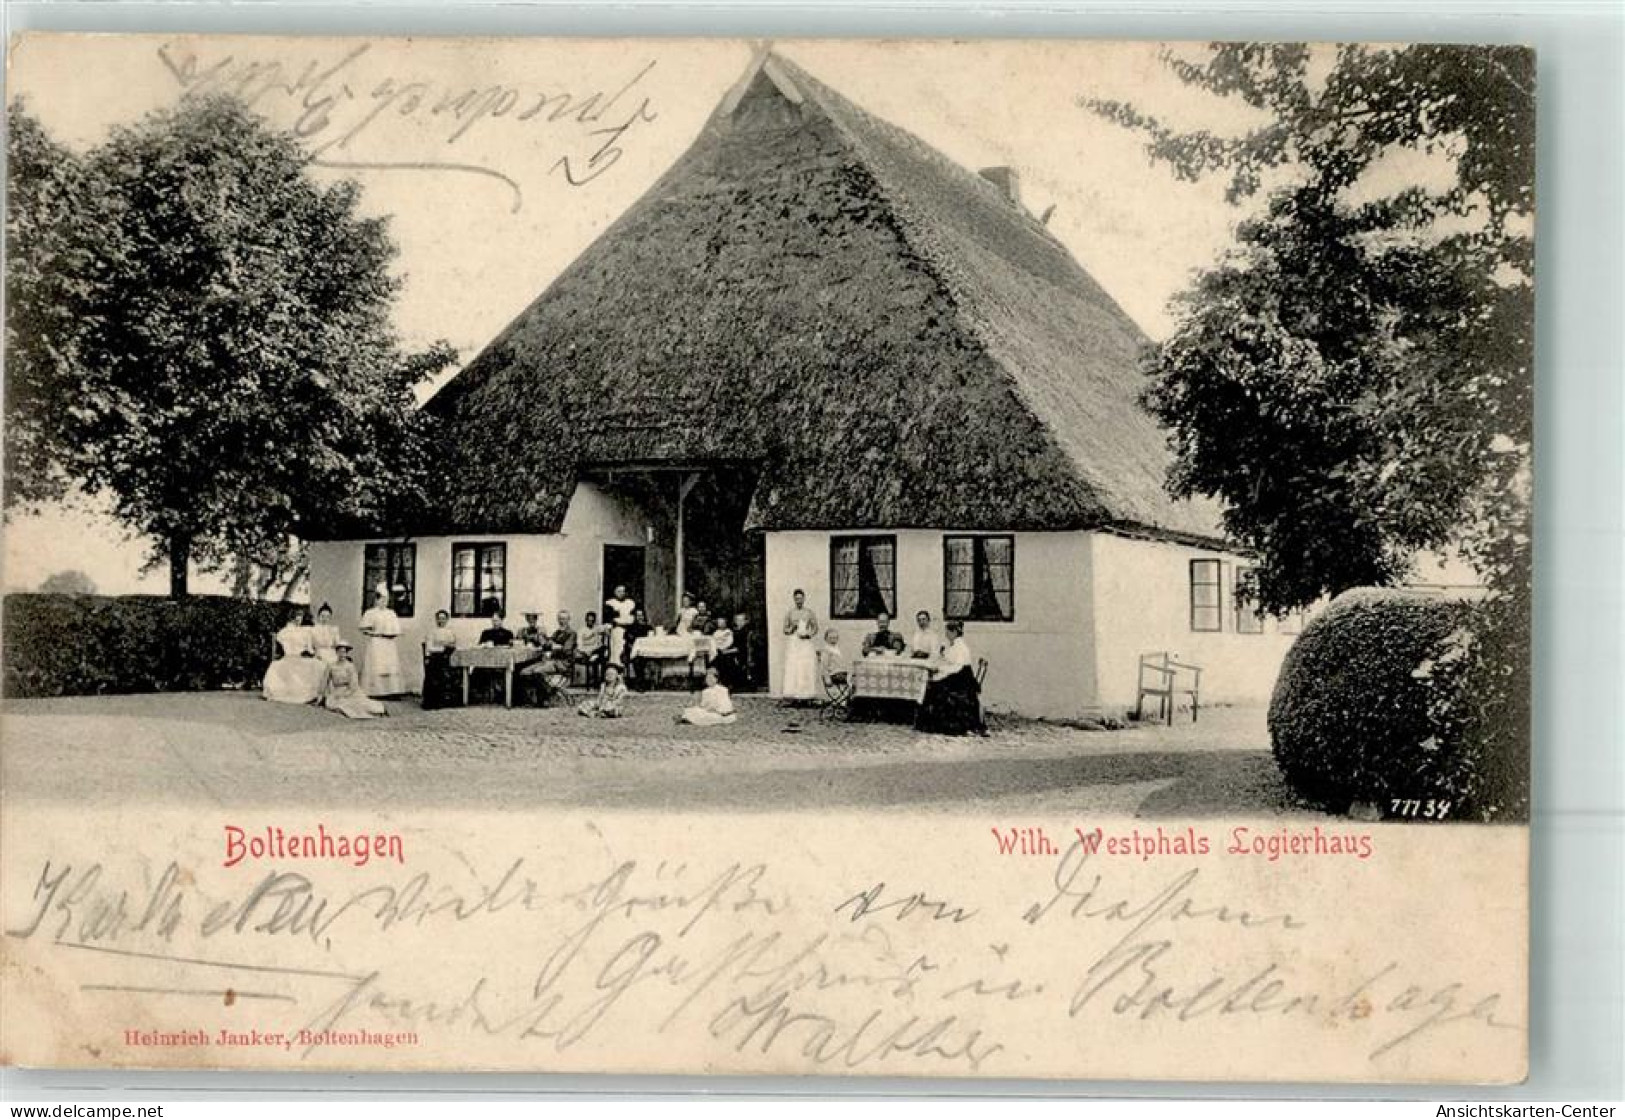 77734
Boltenhagen
Wilh. Westphals Logierhaus
Viele Grüße von diesem
Gasthaus in Boltenhagen
sendet Walther
Heinrich Janker, Boltenhagen
www.delcampe.net
Ansichtskarten-Center